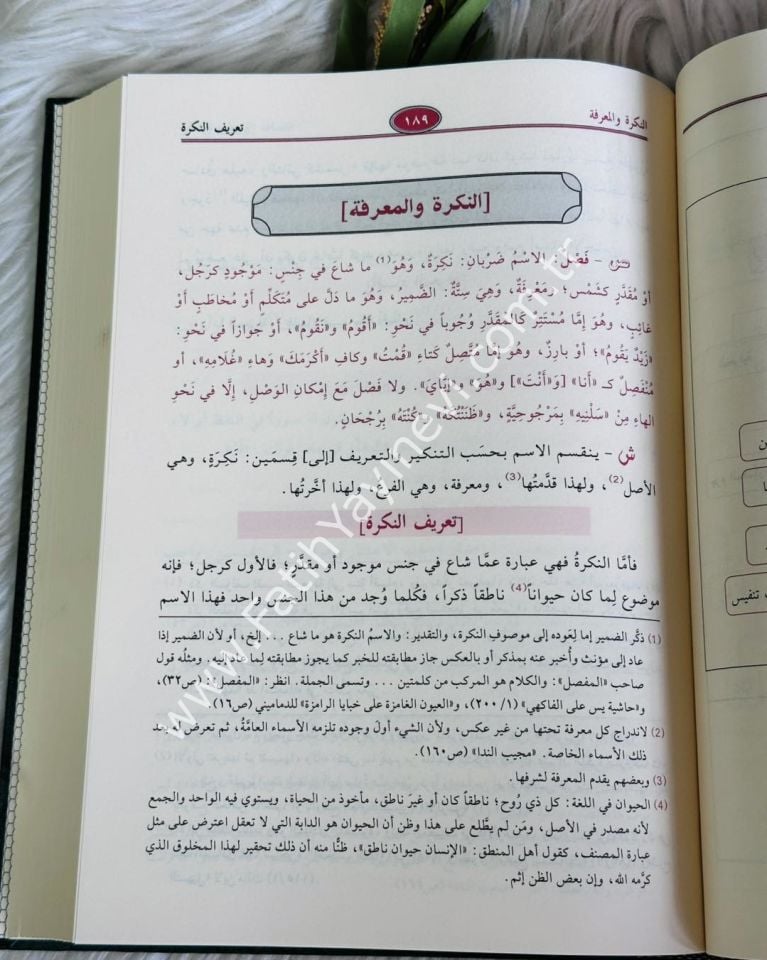 النكرة والمعرفة
١٨٩
تعريف النكرة
[النكرة والمعرفة]
ص – فَصْلٌ: الاسْمُ ضَرْبانِ: نَكِرَةٌ، وَهُوَ (١) ما شاعَ في جِنْسٍ: مَوْجُودٍ كَرَجُلٍ،
أَوْ مُقَدَّرٍ كشَمْسٍ؛ ومَعْرِفَةٌ، وَهِيَ سِتَّةٌ: الضَّمِيرُ، وَهُوَ ما دَلَّ على مُتَكَلِّمٍ أَوْ مُخاطَبٍ أَوْ
غائِبٍ، وهُوَ إمَّا مُسْتَتِرٌ كالمُقَدَّرِ وُجُوباً في نَحْوِ: «أَقُومُ» و«نَقُومُ»، أَوْ جَوازاً في نَحْوِ:
«زَيْدٌ يَقُومُ»؛ أوْ بارِزٌ، وهُو إمَّا مُتَّصِلٌ كتاءِ «قُمْتُ» وكافِ «أَكْرَمَكَ» وَهاءِ «غُلامِهِ»، أو
مُنْفَصِلٌ كـ «أَنا» [وَ«أَنْتَ»] و«هُوَ» و«إيّايَ». ولا فَصْلَ مَعَ إمْكانِ الوَصْلِ، إلَّا في نَحْوِ
الهاءِ مِنْ «سَلْنِيهِ» بِمَرْجُوحِيَّةٍ، و«ظَنَنْتُكَهُ» و«كُنْتَهُ» بِرُجْحَانٍ.
ش – ينقسم الاسم بحسَب التنكير والتعريف [إلى] قِسمَين: نَكِرَةٍ، وهي
الأصل (٢)، ولهذا قدَّمتُها (٣)، ومعرفة، وهي الفرع، ولهذا أخَّرتُها.
[تعريف النكرة]
فأمَّا النكرةُ فهي عبارة عمَّا شاع في جنس موجود أو مقدَّر؛ فالأول كرجل؛ فإنه
موضوع لِما كان حيواناً (٤) ناطقاً ذكراً، فكُلما وُجد من هذا الجنس واحد فهذا الاسم
(١) ذكّر الضمير إما لِعَوده إلى موصوفِ النكرة، والتقدير: والاسمُ النكرة هو ما شاع ... إلخ، أو لأن الضمير إذا
عاد إلى مؤنث وأُخبر عنه بمذكر أو بالعكس جاز مطابقته للخبر كما يجوز مطابقته لِما عاد إليه. ومثلُه قول
صاحب «المفصل»: والكلام هو المركب من كلمتين ... وتسمى الجملة. انظر: «المفصل»: (ص٣٢)،
و«حاشية يس على الفاكهي» (١/ ٢٠٠)، و«العيون الغامزة على خبايا الرامزة» للدماميني (ص١٦).
(٢) لاندراج كل معرفة تحتها من غير عكس، ولأن الشيء أولَ وجوده تلزمه الأسماء العامَّةُ، ثم تعرض له بعد
ذلك الأسماء الخاصة. «مجيب الندا» (ص١٦٠).
(٣) وبعضهم يقدم المعرفة لشرفها.
(٤) الحيوان في اللغة: كل ذي رُوح؛ ناطقاً كان أو غيرَ ناطق، مأخوذ من الحياة، ويستوي فيه الواحد والجمع
لأنه مصدر في الأصل، ومَن لم يطَّلع على هذا وظن أن الحيوان هو الدابة التي لا تعقل اعترض على مثل
عبارة المصنف، كقول أهل المنطق: «الإنسان حيوان ناطق»، ظنًّا منه أن ذلك تحقير لهذا المخلوق الذي
كرَّمه الله، وإن بعض الظن إثم.
www.FatihYayinevi.com.tr
تنفيس